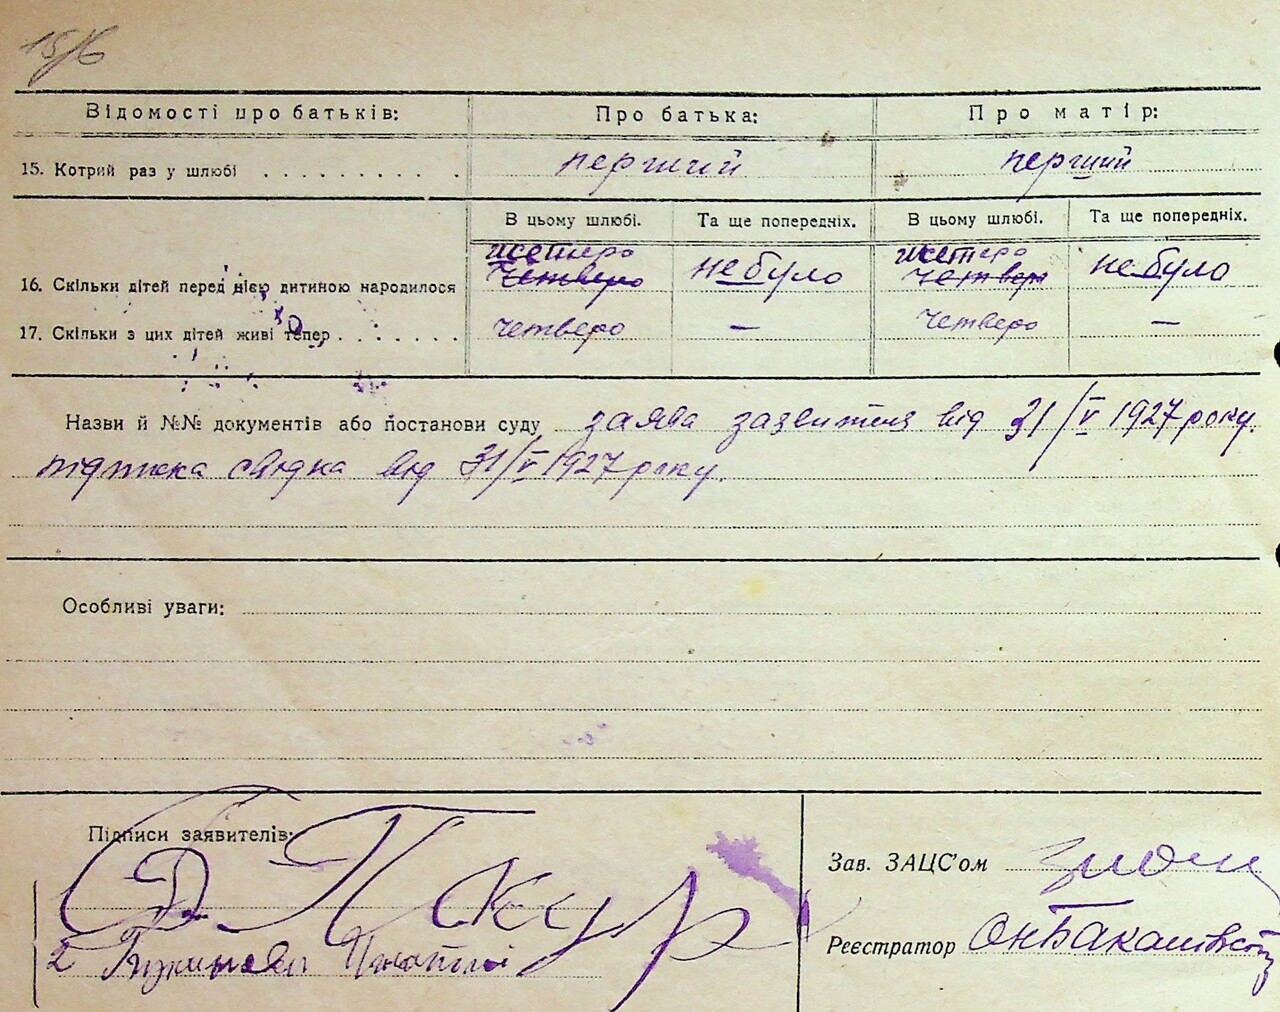 15/6
Відомості про батьків: Про батька: Про матір:
15. Котрий раз у шлюбі . . . . . . . . . . . перший перший
В цьому шлюбі. Та ще попередніх. В цьому шлюбі. Та ще попередніх.
шестеро шестеро
16. Скільки дітей перед цією дитиною народилося четверо не було четверо не було
17. Скільки з цих дітей живі тепер . . . . . . . четверо — четверо —
Назви й №№ документів або постанови суду заява від 31/V 1927 року.
підписка свідка від 31/V 1927 року.
Особливі уваги:
Підписи заявителів:
Зав. ЗАЦС'ом
2
Реєстратор